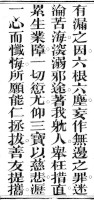 有漏之因六根六塵妄作無邊之罪迷
淪苦海深溺邪途著我躭人舉枉措直
累生業障一切愆尤仰三寶以慈悲瀝
一心而懺悔所願能仁拯拔善友提攜